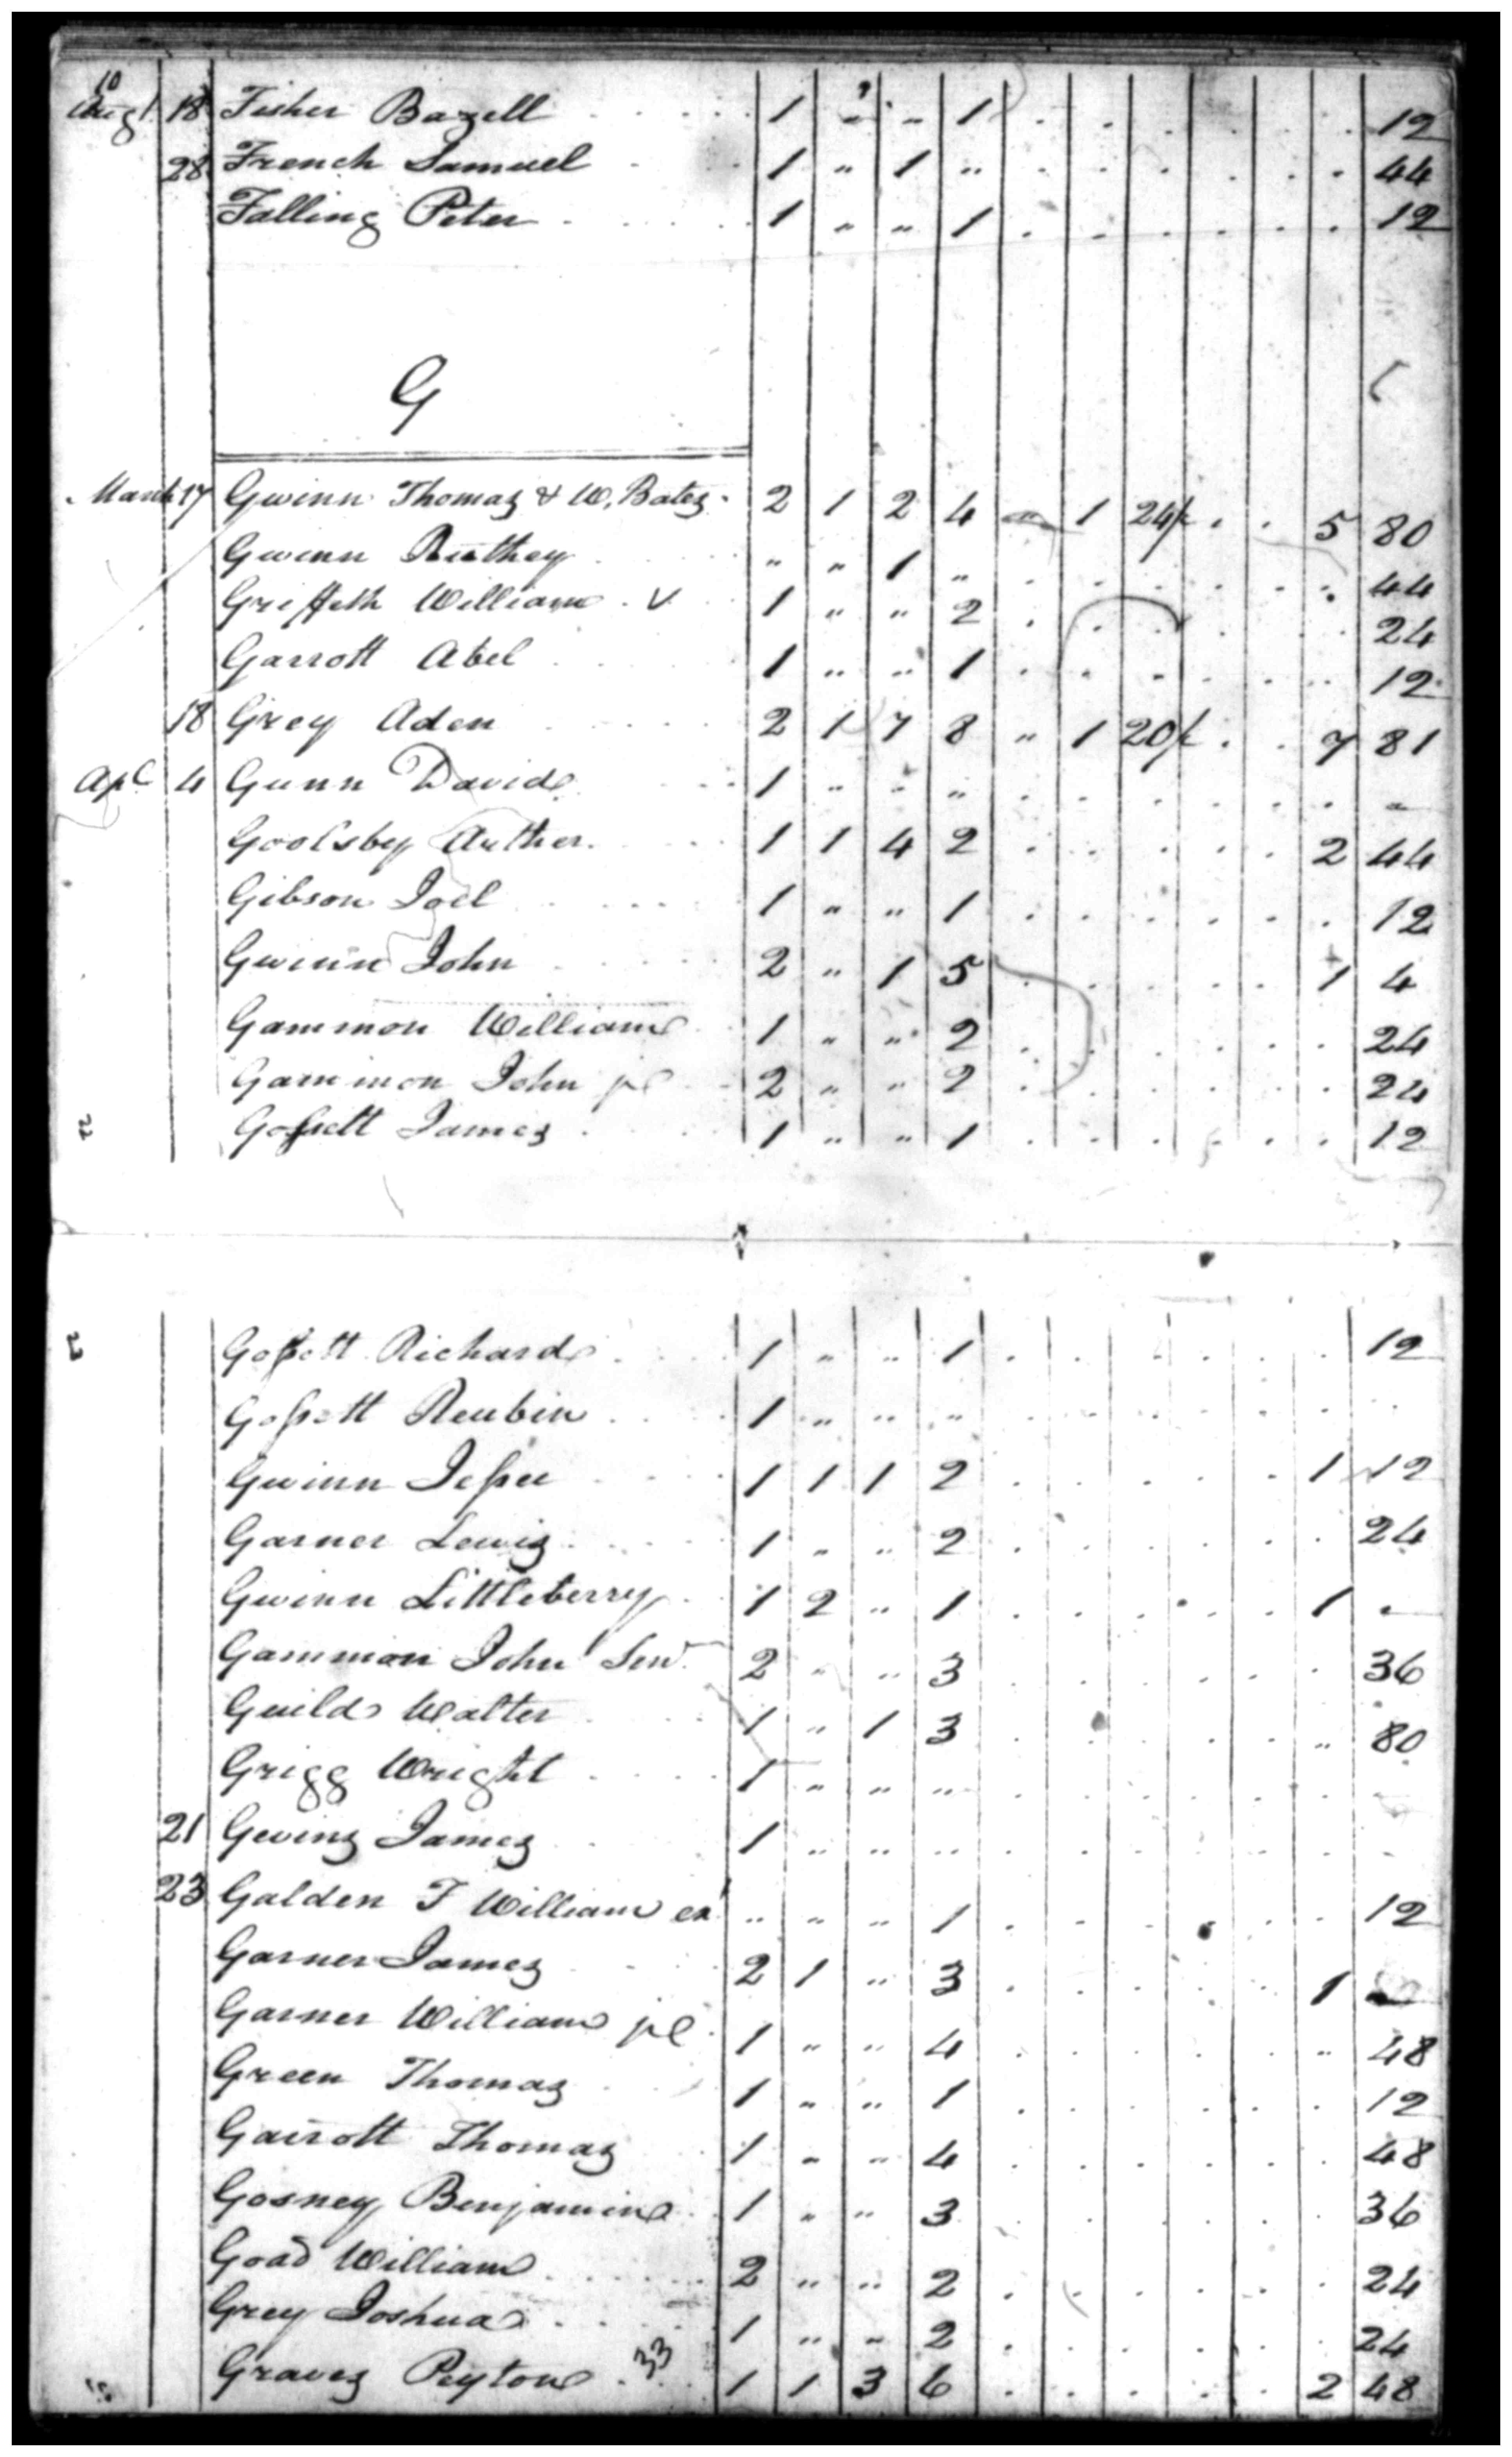 10
Augt 18 Fisher Bazell 1 " " 1 12
28 French Samuel 1 " 1 " 44
Falling Peter 1 " " 1 12
G
March 17 Gwinn Thomas & W. Bates 2 1 2 4 " 1 24/ 5 80
Gwinn Ruthey " " 1 " 44
Griffeth William V 1 " " 2 24
Garrott Abel 1 " " 1 12
18 Grey Aden 2 1 7 8 " 1 20/ 7 81
Apl 4 Gunn David 1 " " "
Goolsby Arther 1 1 4 2 2 44
Gibson Joel 1 " " 1 12
Gwinn John 2 " 1 5 1 4
Gammon William 1 " " 2 24
Gammon John jr 2 " " 2 24
22 Gossett James 1 " " 1 12
23 Gossett Richard 1 " " 1 12
Gossett Reubin 1 " " "
Gwinn Jessee 1 1 1 2 1 12
Garner Lewis 1 " " 2 24
Gwinn Littleberry 1 2 " 1 1 -
Gammon John Senr 2 " " 3 36
Guild Walter 1 " 1 3 " 80
Grigg Wright 1 " " "
21 Gevins James 1 " " "
23 Galden F William ex " " " 1 12
Garner James 2 1 " 3 1
Garner William jr 1 " " 4 " 48
Green Thomas 1 " " 1 12
Garrott Thomas 1 " " 4 48
Gosney Benjamin 1 " " 3 36
Goad William 2 " " 2 24
Grey Joshua 1 " " 2 24
Graves Peyton 33 1 1 3 6 2 48